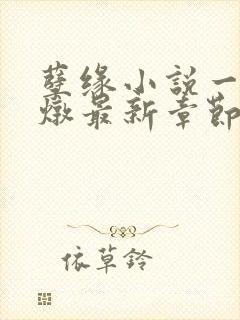 孽缘小説一
燉最新章節
依草鈴